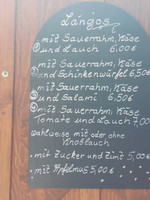 Lángos
① mit Sauerrahm, Käse
und Lauch 6,00€
② mit Sauerrahm, Käse
und Schinkenwürfel 6,50€
③ mit Sauerrahm, Käse
und Salami 6,50€
④ mit Sauerrahm, Käse
Tomate und Lauch 7,00
Wahlweise mit oder ohne
Knoblauch
• mit Zucker und Zimt 5,00€
• mit Apfelmus 5,00€